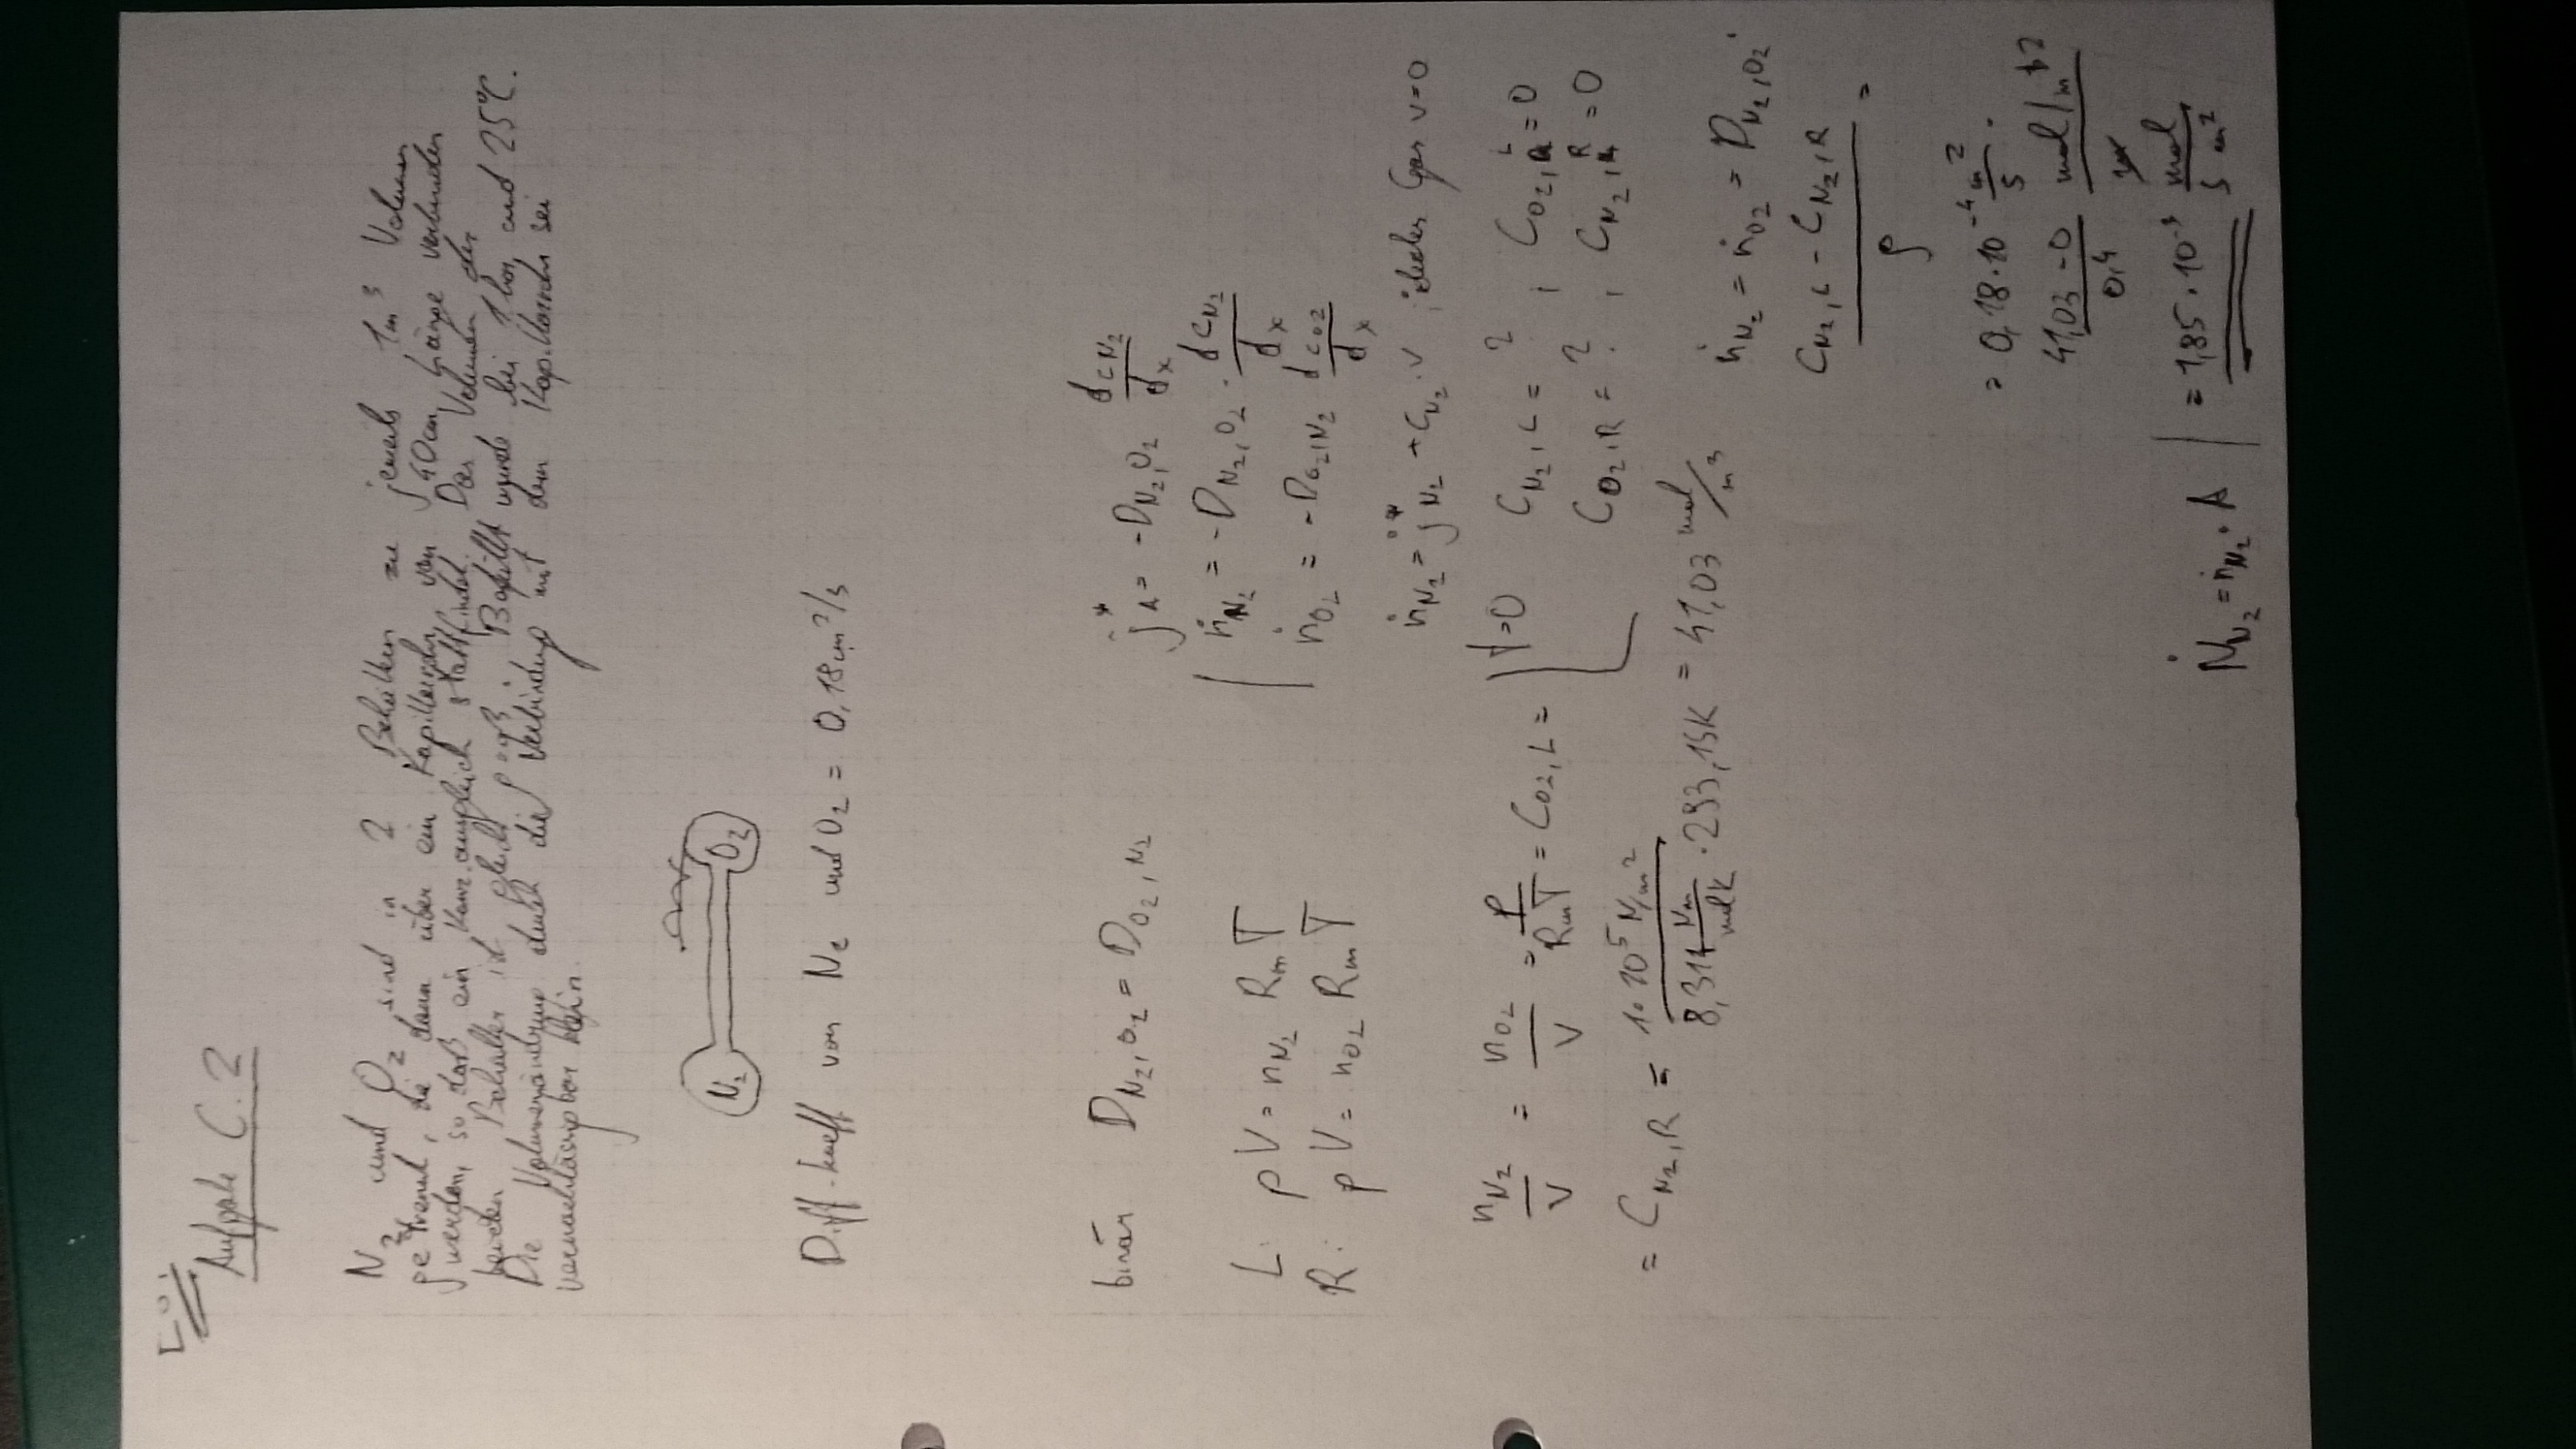 Löi
Aufgabe C.2
N2 und O2 sind in 2 Behältern zu jeweils 1m³ Volumen
getrennt, die dann über ein Kapillarrohr von 40cm Länge verbunden
werden, so daß ein Konz.ausgleich stattfindet. Das Volumen der
beiden Behälter ist gleich groß; Befüllt wurde bei 1bar und 25°C.
Die Volumenänderung durch die Verbindung mit dem Kapillarrohr sei
vernachlässigbar klein.
N2 O2
Diff.koeff von N2 und O2 = 0,18cm²/s
binär D_N2,O2 = D_O2,N2
j*_A = -D_N2,O2 dc_N2/dx
ṅ_N2 = -D_N2,O2 · dc_N2/dx
ṅ_O2 = -D_O2,N2 dc_O2/dx
L: pV = n_N2 R_m T
R: pV = n_O2 R_m T
ṅ_N2 = j*_N2 + c_N2 · v ; ideales Gas v=0
t=0 C_N2,L = ? ; C_O2,L = 0
C_O2,R = ? ; C_N2,R = 0
n_N2/V = n_O2/V = p/(R_m T) = C_O2,L =
= C_N2,R = 1·10⁵ N/m² / (8,314 Nm/molK · 293,15K) = 41,03 mol/m³
ṅ_N2 = ṅ_O2 = D_N2,O2 ·
(C_N2,L - C_N2,R)/l =
= 0,18·10⁻⁴ m²/s ·
(41,03 - 0)/0,4 mol/m
= 1,85·10⁻³ mol/(s m²)
Ṅ_N2 = ṅ_N2 · A